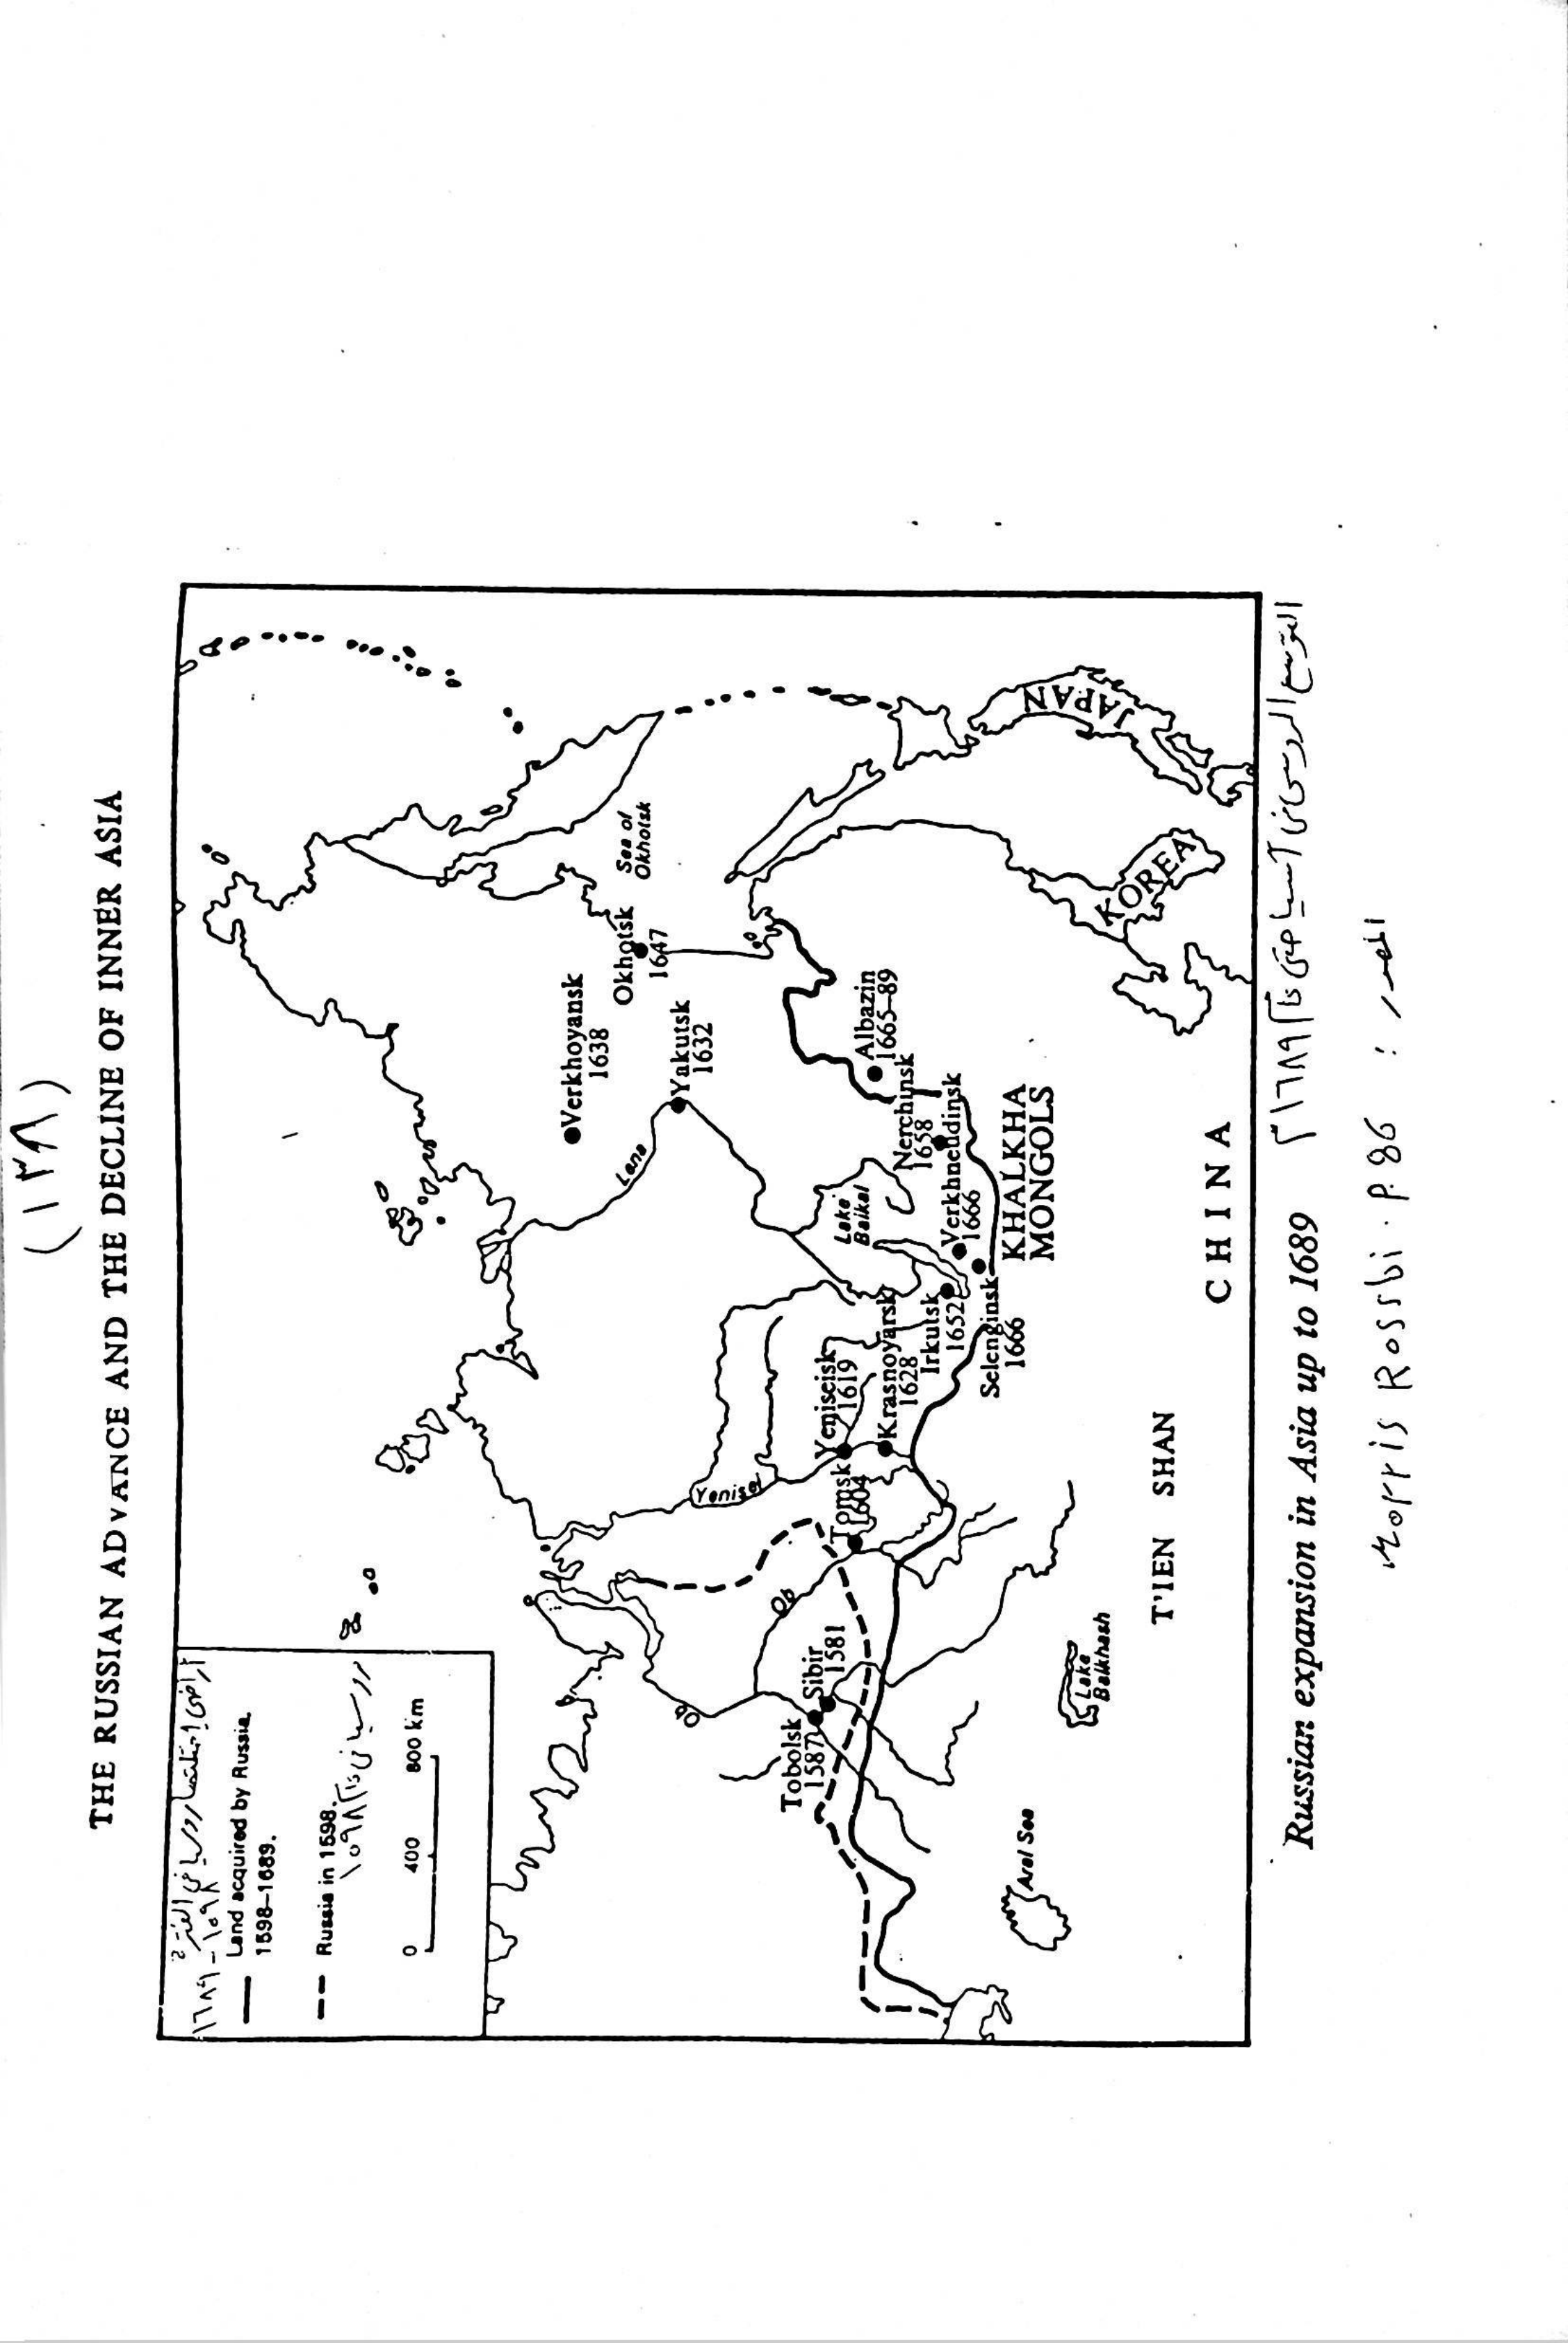 (١٣٨)
THE RUSSIAN ADVANCE AND THE DECLINE OF INNER ASIA
أراضي إمتلكتها روسيا في الفترة
١٥٩٨ - ١٦٨٩
Land acquired by Russia.
1598–1689.
Russia in 1598.
روسيا في
١٥٩٨
0 400 800 km
Verkhoyansk
1638
Okhotsk
1647
Sea of
Okhotsk
Yakutsk
1632
Lena
Yenisei
Ob
Ob
Tobolsk
1587
Sibir
1581
Tomsk
1604
Yeniseisk
1619
Krasnoyarsk
1628
Irkutsk
1652
Lake
Baikal
Selenginsk
1666
Verkhneudinsk
1666
Nerchinsk
1658
Albazin
1665–89
KHALKHA
MONGOLS
Aral Sea
Lake
Balkhash
T'IEN SHAN
CHINA
KOREA
JAPAN
Russian expansion in Asia up to 1689
التوسع الروسي في آسيا حتى ١٦٨٩م
المصدر : Morris Rossbi. P. 86